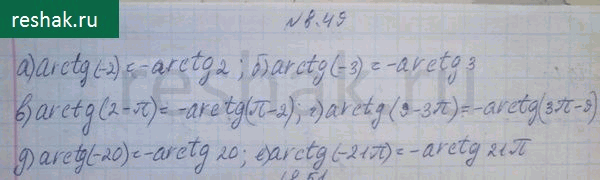 reshak.ru
№8.49
а) arctg(-2) = -arctg2; б) arctg(-3) = -arctg3
в) arctg(2-π) = -arctg(π-2); г) arctg(9-3π) = -arctg(3π-9)
д) arctg(-20) = -arctg 20; е) arctg(-21π) = -arctg 21π